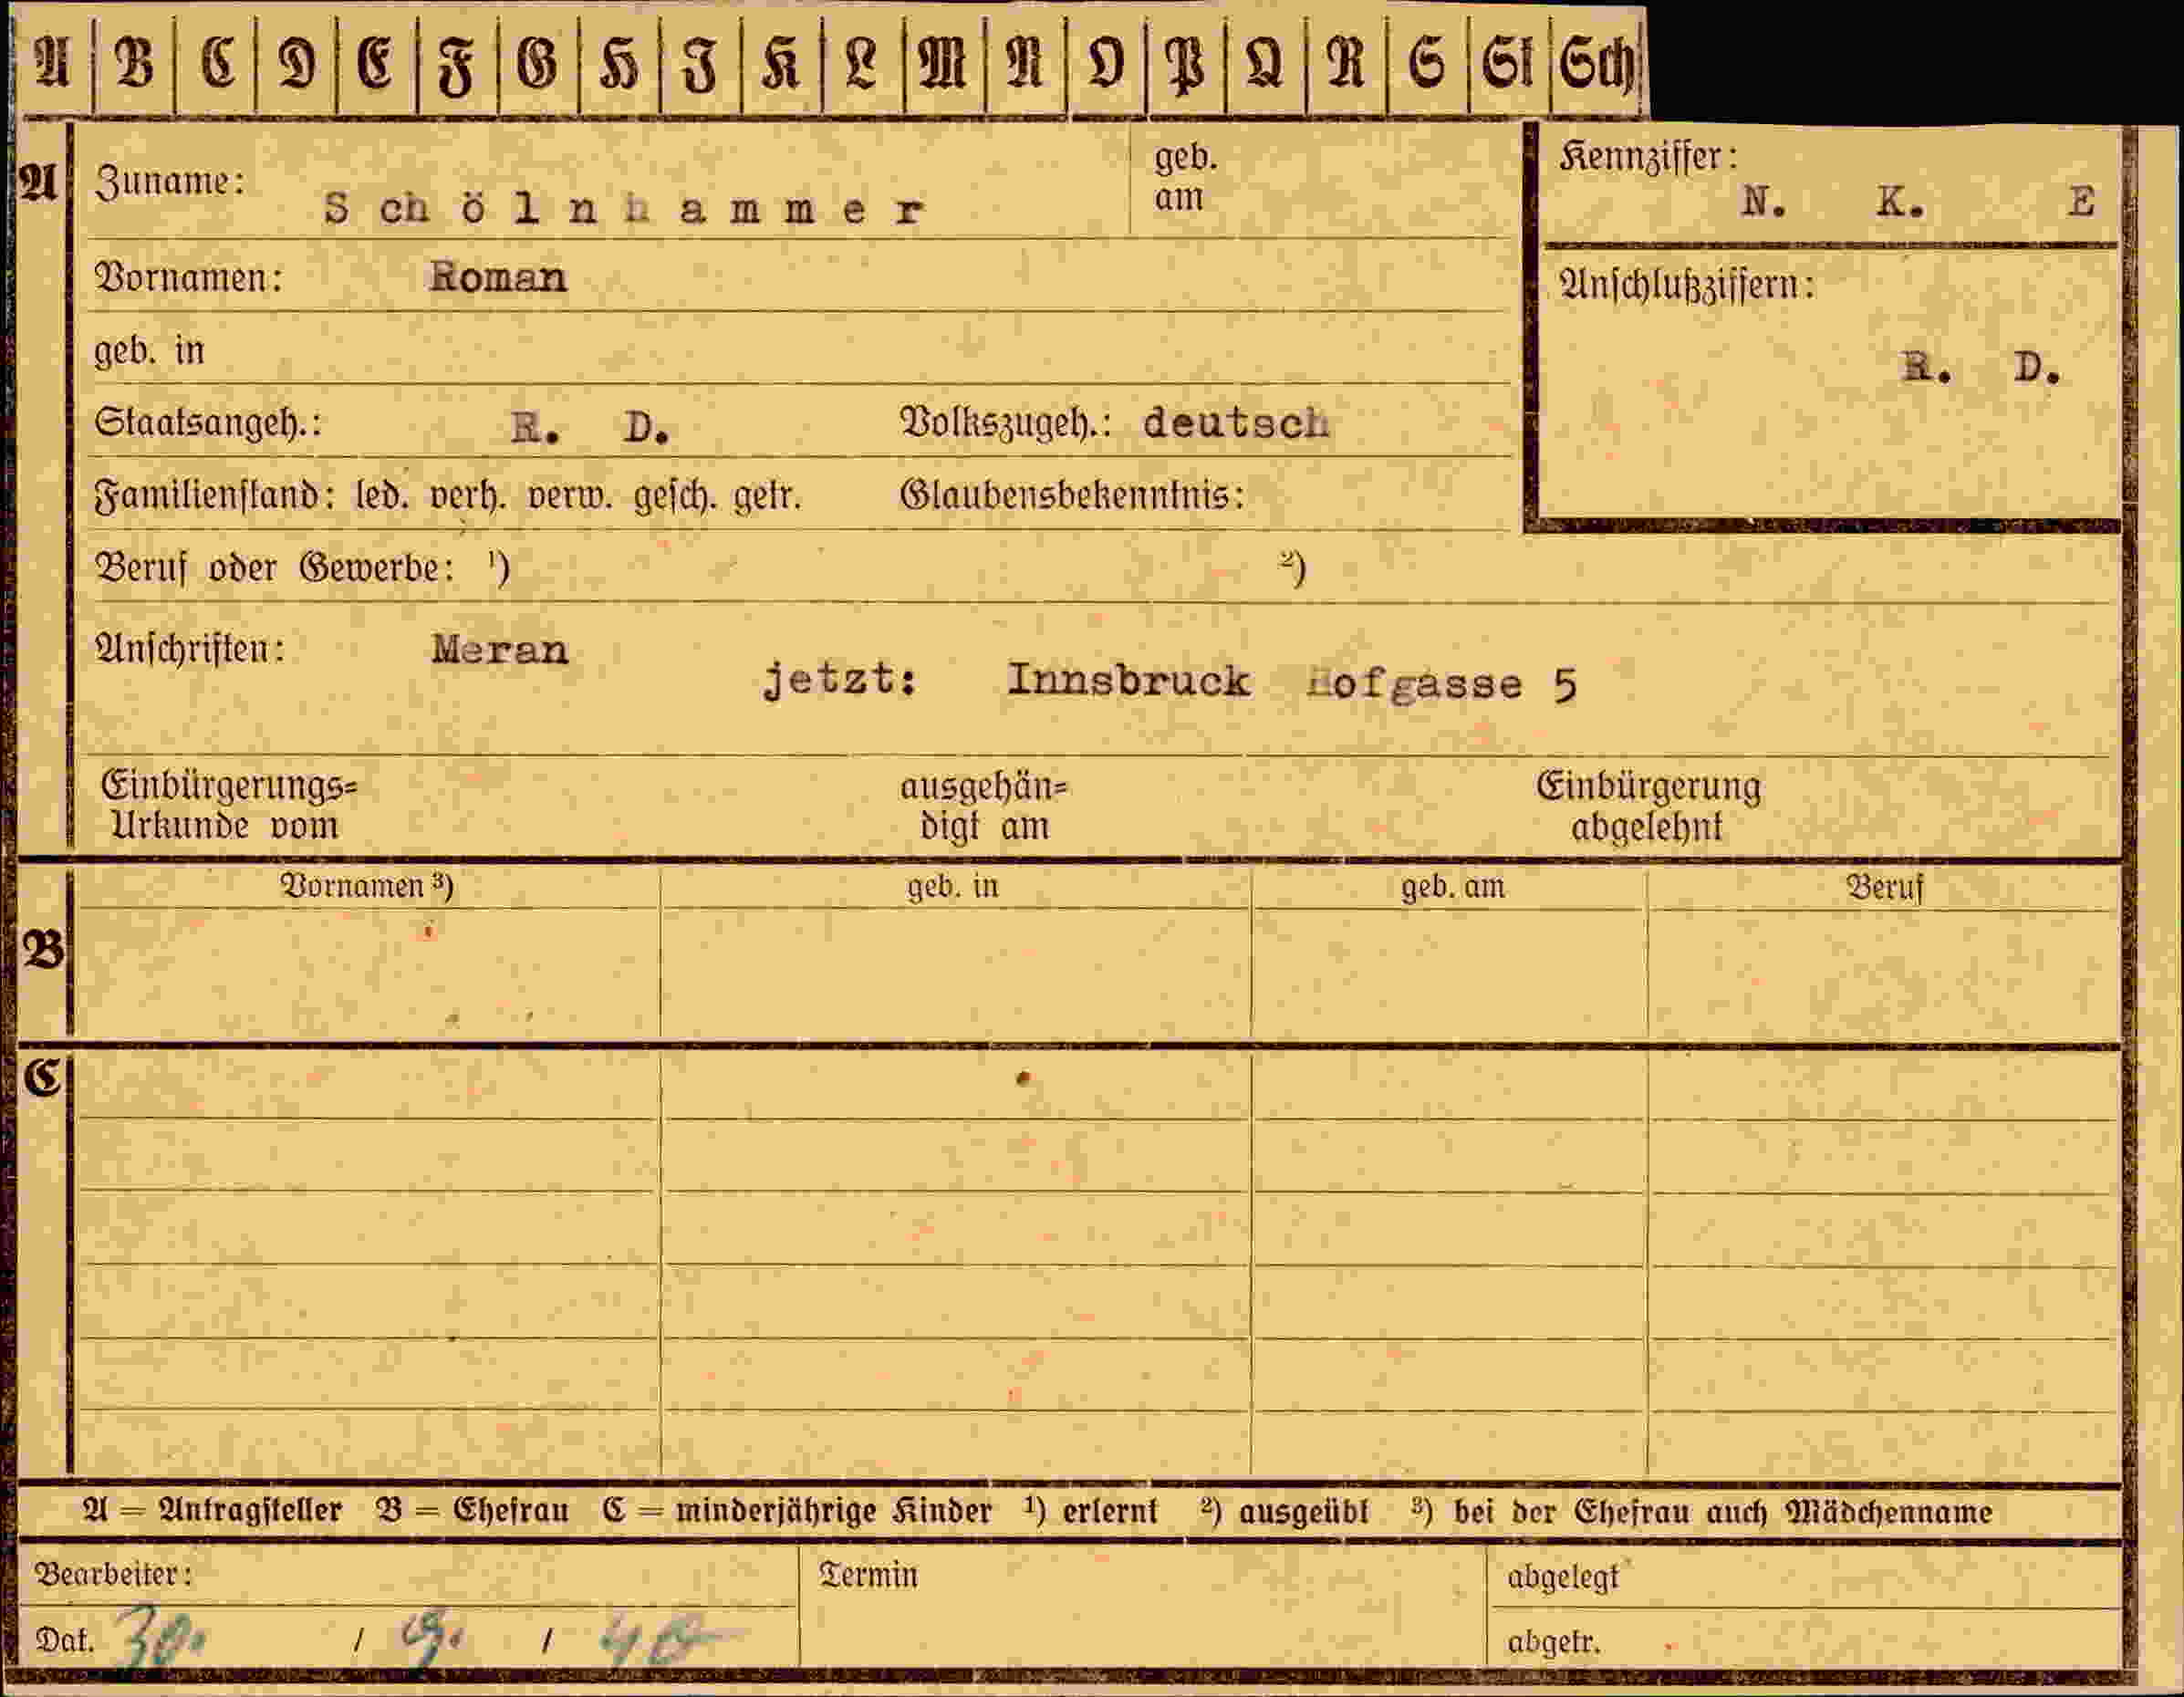 A B C D E F G H I K L M N O P Q R S St Sch
A Zuname: Schölnhammer geb. am
Kennziffer: N. K. E
Vornamen: Roman
Anschlußziffern:
geb. in
R. D.
Staatsangeh.: R. D. Volkszugeh.: deutsch
Familienstand: led. verh. verw. gesch. getr. Glaubensbekenntnis:
Beruf oder Gewerbe: ¹) ²)
Anschriften: Meran
jetzt: Innsbruck Hofgasse 5
Einbürgerungs= ausgehän= Einbürgerung
Urkunde vom digt am abgelehnt
Vornamen ³) geb. in geb. am Beruf
B
C
A = Antragsteller B = Ehefrau C = minderjährige Kinder ¹) erlernt ²) ausgeübt ³) bei der Ehefrau auch Mädchenname
Bearbeiter: Termin abgelegt
Dat. 30. / 9. / 40 abgetr.